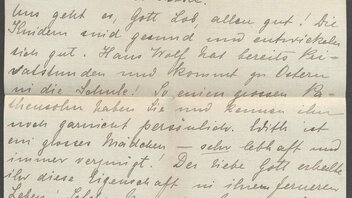 Uns geht es, Gott Lob, allen gut! Die
Kinder sind gesund und entwickeln
sich gut. Hans Wolf hat bereits Pri-
vatstunden und kommt zu Ostern
in die Schule! So einen grossen Pa-
thensohn haben Sie und kennen ihn
noch garnicht persönlich. Edith ist
ein grosses Mädchen – sehr lebhaft und
immer vergnügt! Der liebe Gott erhalte
ihr diese Eigenschaft in ihrem ferneren